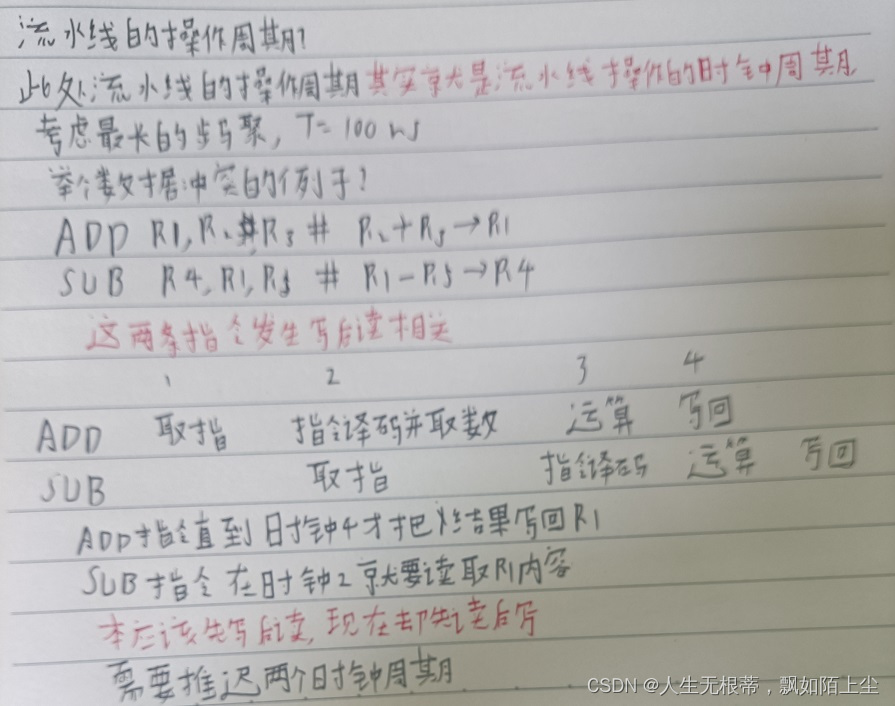 流水线的操作周期?
此处流水线的操作周期其实就是流水线操作的时钟周期
考虑最长的步骤, T= 100 ns
举个数据冲突的例子?
ADD R1, R2, R3 # R2+R3→R1
SUB R4, R1, R5 # R1-R5→R4
这两条指令发生写后读相关
1 2 3 4
ADD 取指 指令译码并取数 运算 写回
SUB 取指 指令译码 运算 写回
ADD指令直到时钟4才把结果写回R1
SUB指令在时钟2就要读取R1内容
本应该先写后读, 现在却先读后写
需要推迟两个时钟周期
CSDN @人生无根蒂，飘如陌上尘